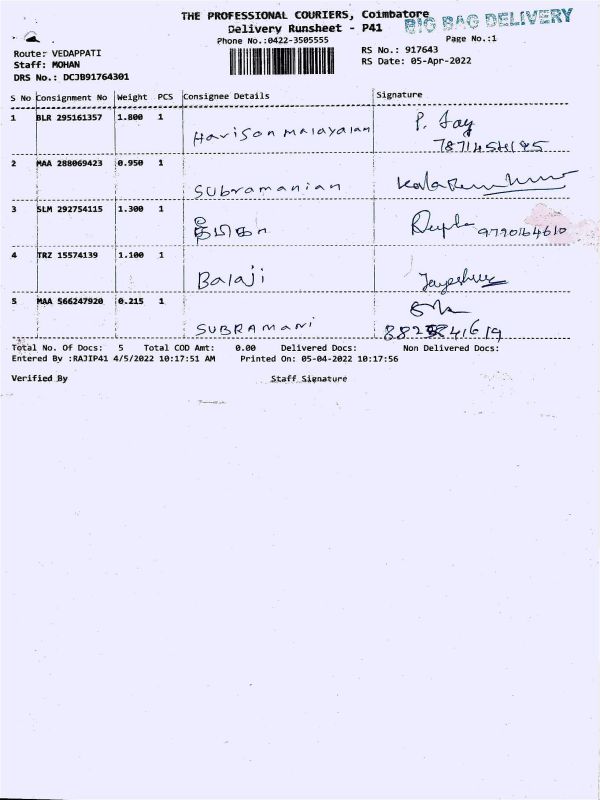 THE PROFESSIONAL COURIERS, Coimbatore
BIG BAG DELIVERY
Delivery Runsheet - P41
Phone No.:0422-3505555
Page No.:1
Route: VEDAPPATI
RS No.: 917643
Staff: MOHAN
RS Date: 05-Apr-2022
DRS No.: DCJB91764301
S No Consignment No Weight PCS Consignee Details Signature
1 BLR 295161357 1.800 1 Harison malayalam P. Jay
2 MAA 288069423 0.950 1 Subramanian
3 SLM 292754115 1.300 1 தீபிகா Deepika 9790164610
4 TRZ 15574139 1.100 1 Balaji
5 MAA 566247920 0.215 1 SUBRAMANI
Total No. Of Docs: 5 Total COD Amt: 0.00 Delivered Docs: Non Delivered Docs:
Entered By :RAJIP41 4/5/2022 10:17:51 AM Printed On: 05-04-2022 10:17:56
Verified By Staff Signature